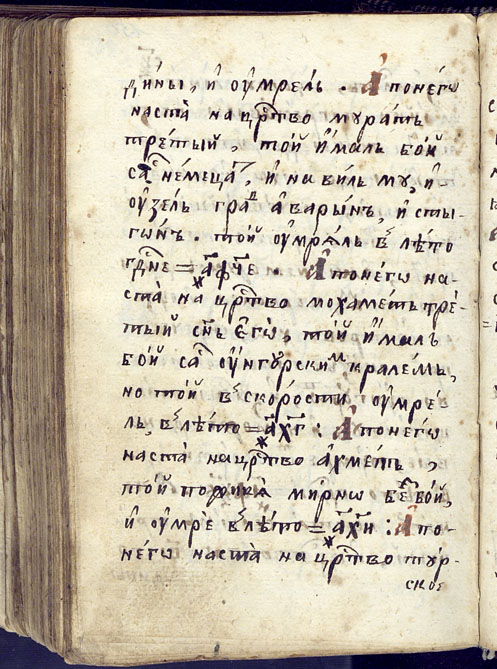 дины, и оумрелъ . А по него
наста на цр҃тво муратъ
третый , той ималъ бой
са немеца , и на вилъ му, и
оузелъ град аварынъ, и сты-
гонъ . той оумралъ въ лѣто
гдⷭ҇не = ҂аф҃ч҃е . А по него на-
ста на цр҃тво мохаметъ тре-
тый сн҃ъ его, той ималъ
бой са оунгурским кралемъ,
но той в скорости оумре
лъ, в лѣто = ҂ах҃г : А по него
наста на цр҃тво ахметъ ,
той мирно без бой,
и оумре в лѣто = ҂ах҃и : А по-
него наста на цр҃тво тур-
ское